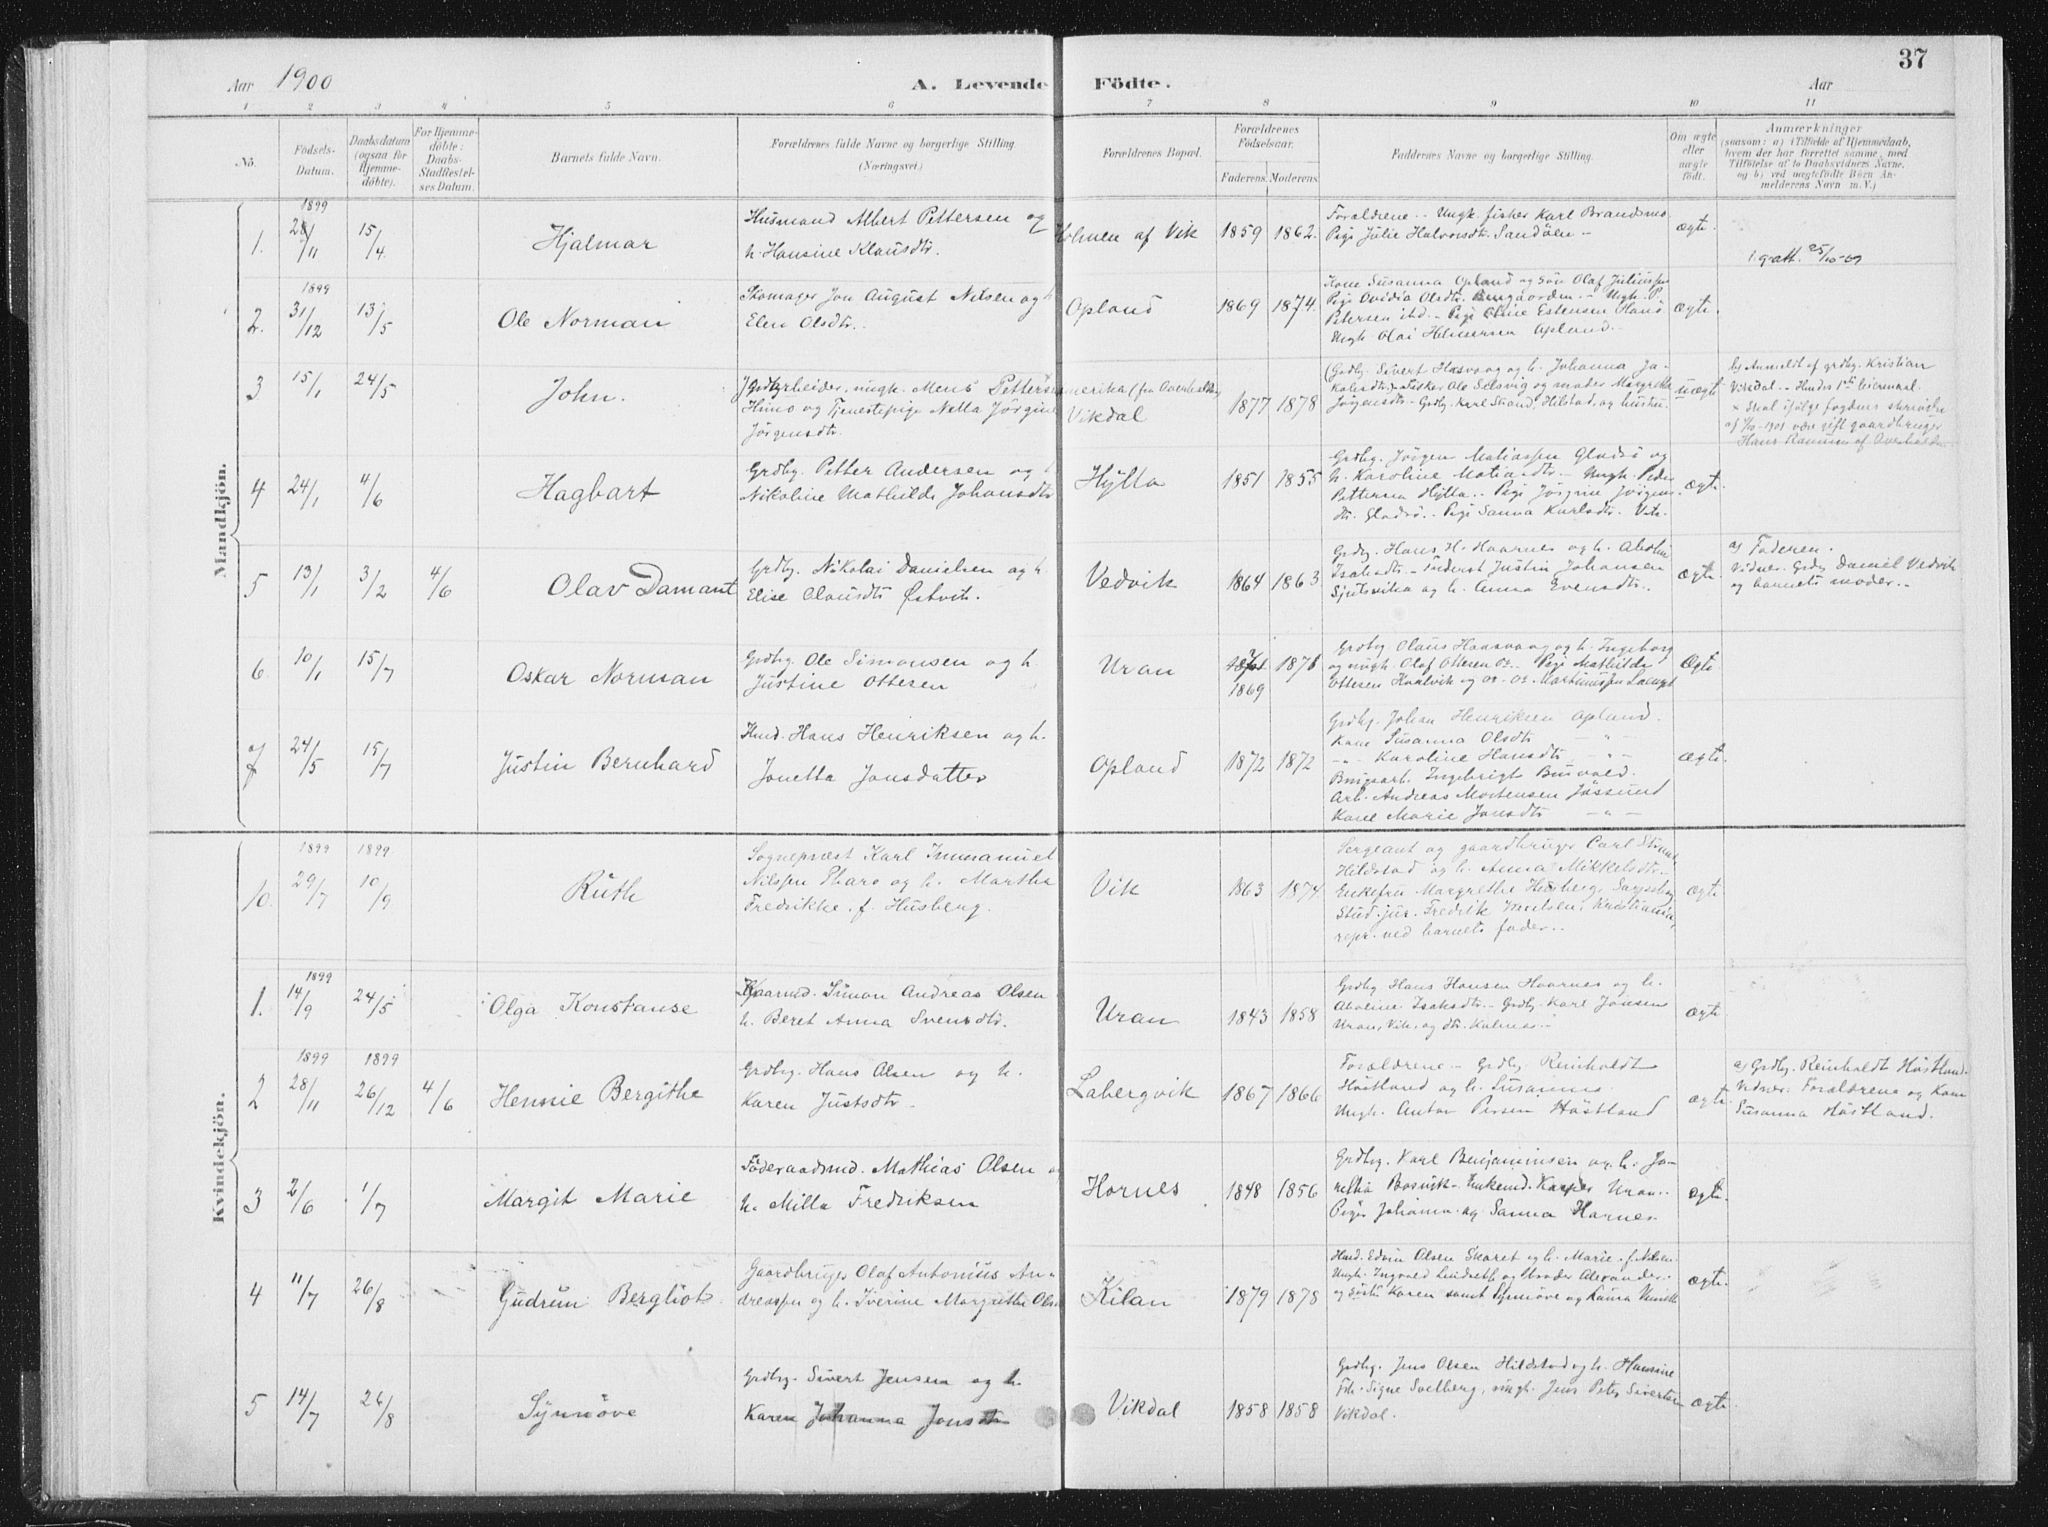 37
Aar 1900
A. Levende Födte.
Aar
1 2 3 4 5 6 7 8 9 10 11
No.
Födsels-Datum.
Daabsdatum (ogsaa for Hjemme-döbte).
For Hjemme-döbte: Daabs-Stadfæstel-ses Datum.
Barnets fulde Navn.
Forældrenes fulde Navne og borgerlige Stilling. (Næringsvei.)
Forældrenes Bopæl.
Forældrenes Födselsaar.
Faderens. Moderens.
Faddernes Navne og borgerlige Stilling.
Om ægte eller uægte födt.
Anmærkninger
(saasom: a) i Tilfælde af Hjemmedaab, hvem der har forrettet samme, med Tilföielse af to Daabsvidners Navne, og b) ved uægtefödte Börn Anmelderens Navn m. V.)
Mandkjön.
1. 1899 28/11 15/4 Hjalmar
Husmand Albert Pettersen og
h. Hansine Klausdtr.
Holmen af Vik 1859 1862.
Forældrene -- Ungk. fisker Karl Brandsmo
Pige Julie Halvorsdtr. Sandöen -
ægte.
1. g. att. 25/10-09
2. 1899 31/12 13/5 Ole Norman
Skomager Jon August Nilsen og h
Elen Olsdtr.
Opland 1869 1874.
Kone Susanna Opland og sön Olaf Juliussen
Pige Ovidia Olsdtr. - Ungk. P.
Petersen ibd - Pige Oline Estensen
Ungk. Olai Helmersen Opland.
ægte.
3 15/1 24/5 John.
ungk. Mens Petters
og Tjenestepige Netta Jörgine
Jörgensdtr.
Amerika (fra Overhalla)
Vikdal 1877 1878
(Grdbg. Sivert Hasvaag og h. Johanna Ja-
kobsdtr. Fisker Ole og moder Margrethe
Jörgensdtr - Grdbg. Karl Strand, Hilstad, og hustru.
uægte
b) Anmeldt af grdbg. Kristian
Vikdal. - Hendes 1ste leiermaal.
x Skal ifölge fogdens skrivelse
af 1901 være gift gaardbruger
Hans af Overhalden
4 24/1 4/6 Hagbart
Grdbg. Petter Andersen og h
Nikoline Mathilde Johansdtr
Hylla 1851 1855
Grdbg. Jörgen Matiassen Gladsö og
h. Karoline Matiasdtr - Ungk. Peder
Pettersen Hylla.. Pige Jörgine Jörgens-
dtr. Gladsö.. Pige Sanna Karlsdtr. Vik.
ægte.
5 13/1 3/2 4/6 Olav Damant
Grdbg. Nikolai Danielsen og h.
Elise Olausdtr Östvik.
Vedvik 1864 1863
Grdbg. Hans H. Haarnes og h. Abeline
Isaksdtr - Inderst Justin Johansen
Sjutsvika og h. Anna Evensdtr..
ægte.
a) Faderen.
Vidner. Grdbg Daniel Vedvik
og barnets moder..
6. 10/1 15/7 Oskar Norman
Grdbg. Ole Simonsen og h.
Justine Ottesen
Uran 1869 1871
Grdbg Olaus Haasvaag og h. Ingeborg
og ungk. Olaf Ottesen .. Pige Mathilde
Ottesen Kaalvik og Martinussen
Ægte
7 24/5 15/7 Justin Bernhard
Husmd. Hans Henriksen og h.
Jonetta Jonsdatter
Opland 1872 1872
Grdbg. Johan Henriksen Opland.
Kone Susanna Olsdtr - " -
- " - Karoline Hansdtr - " -
Brugsarb. Ingebrigt Buvold.
Arb. Andreas Mortensen Jössund
Kone Marie Jonsdtr - " -
Ægte.
Kvindekjön.
10. 1899 29/7 1899 10/9 Ruth
Sogneprest Karl Immanuel
Nilssen Tharo og h. Martha
Fredrikke. f. Husberg.
Vik 1863 1874
Sergeant og gaardbruger Carl Strand
Hildstad og h. Anna Mikkelsdtr. -
Enkefru Margrethe Husberg, Sarpsborg
Stud. jur. Fredrik, Kristiania,
repr. ved barnets fader..
ægte.
1. 1899 14/9 24/5 Olga Konstanse
Simon Andreas Olsen
h. Beret Anna Svensdtr.
Uran 1843 1858
Grdbg Hans Hansen Haarnes og h.
Abeline Isaksdtr - Grdbg. Karl Jonsen
Uran, Vik, og dtr. Kalma. -
ægte
2 1899 28/11 1899 26/12 4/6 Hennie Bergithe
Grdbg. Hans Olsen og h.
Karen Justsdtr -
Labergvik 1867 1866
Forældrene - Grdbg. Reinholdt
Höstland og h. Susanna.
Ungk. Anton Persen Höstland
ægte.
a) Grdbg. Reinholdt Höstland.
Vidner. Forældrene og Kone
Susanna Höstland.
3 2/6 1/7 Margit Marie
Föderaadsmd. Mathias Olsen og
h. Milla Fredriksen
Hornes 1848 1856
Grdbg. Karl Benjaminsen og h. Jo-
Enkemd. Kasper Uran..
Piger Johanna og Sanna Hornes
ægte.
4 11/7 26/8 Gudrun Bergliot
Gaardbruger Olaf Antonius An-
dreassen og h. Iverine Margrethe Ols
Kilan 1879 1878
Husmd. Edvin Olsen Skaret og h. Marie. f. Nilsen
Ungk. Ingvald Lindseth og Alexander.
og Karen samt Synnöve og Laura
ægte.
5 14/7 26/8 Synnöve
Grdbg. Sivert Jensen og h.
Karen Johanna Jonsdtr
Vikdal 1858 1858
Grdbg. Jens Olsen Hildstad og h. Hansine
Frk. Signe Solberg, ungk. Jens Peter Sivertsen
Vikdal.
ægte